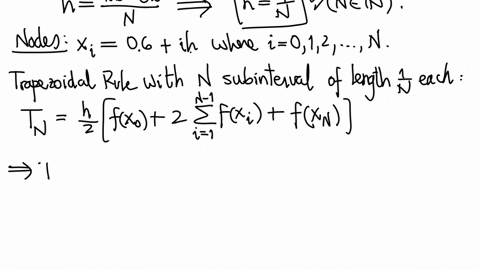 h = N ⟹ h = 1/N, (N∈ℕ).
Nodes: x_i = 0,6 + ih where i=0,1,2, ..., N.
Trapezoidal Rule with N subinterval of length 1/N each:
T_N = h/2 [f(x_0) + 2 Σ_{i=1}^{N-1} f(x_i) + f(x_N)]
⟹